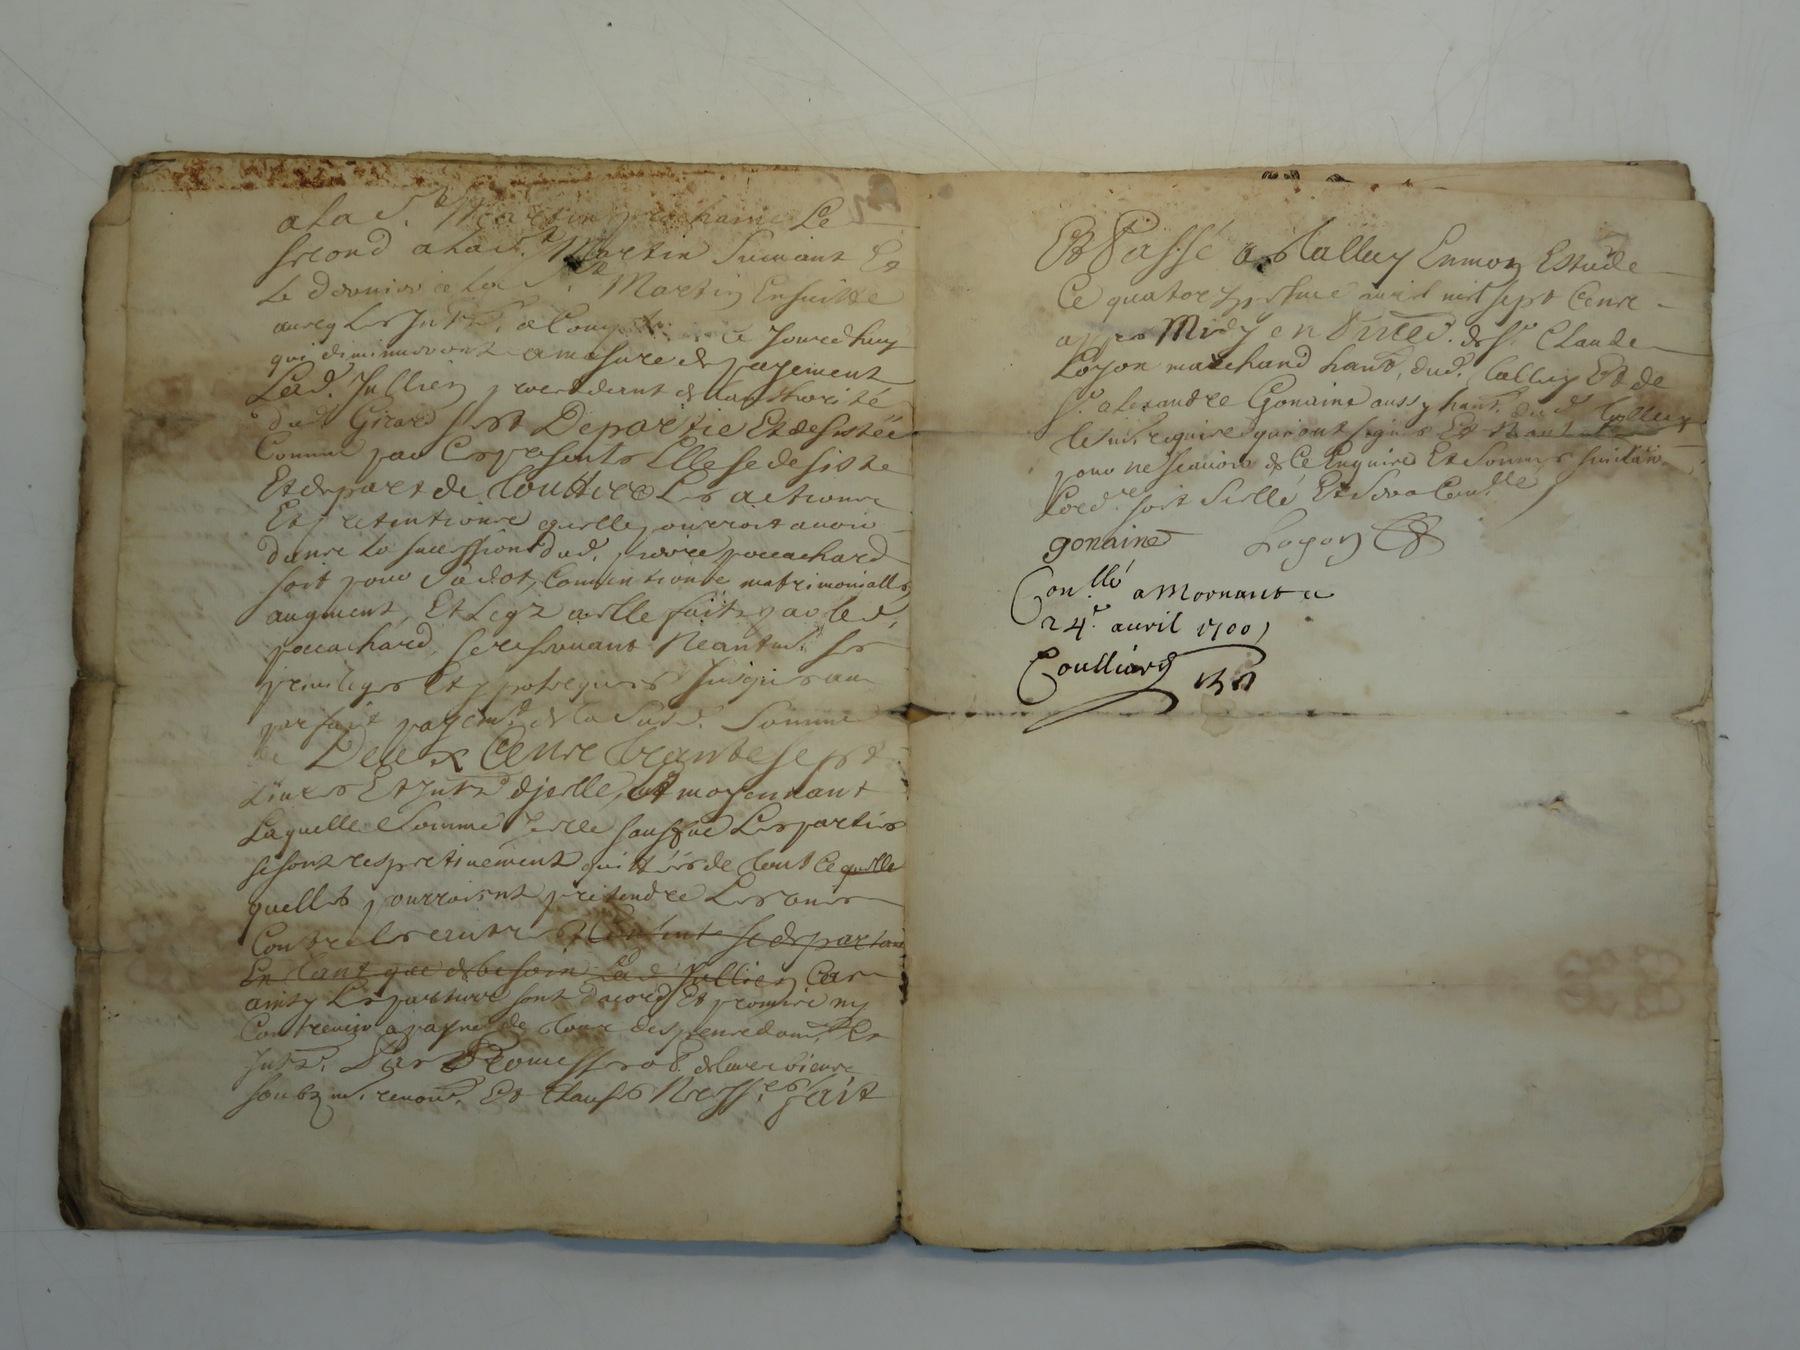 a La St. Martin prochaine Le
second a La St. Martin Suivant Et
Le dernier a La St. Martin Ensuitte
avecq Les Intz. a Compter ce Jourdhuy
qui diminueront a mesure de payement
Lad. Jullien procedant de Lauthorité
dud. Girard sest Departie Et desistée
Comme par Ces presentes Elle se desiste
Et depart de Touttes Les actionre
Et pretentionre quelle pourroit avoir
danre La sucession dud. poccachard
soit pour Sa dot, Convintionre matrimonialles
augment, Et Legz a elle faitz par led.
poccachard, se reservant Neantm. ses
privileges Et ypotreques Jusques au
parfait payemt. de La Susd. Somme
de Deux Cenre trante sept
Livres Et Intz. djcelle, Et moyennant
Laquelle Somme Jcelle sausfve Les parties
se sont respectivement quittées de Tout Ce quelle
quelles pourroient pretendre Les unes
Contre Les autres se departant
En tant que de besoin La d. Jullien Car
ainsy Les partiere sont dacord Et promire ny
Contrevenir a payne de Toure despenre dom. Et
Intz. Par Promesses ob. de Leure bienre
soubzm. renon. Et Clauses Ness.res fait
Et Passé a Talluy En mon Estude
Ce quatorziesme avril mil sept Cenre
appres Midy en Preces. de Sr. Claude
Loyon marchand habt. dud. Talluy Et de
Sr. alexandre Gonaine aussy habt. dud. Talluy
tesm. require qui ont signés Et
pour ne scavoir de Ce Enquire Et Sommes suivant
Lord. soit Scellé Et Sera Conllé
gonaine Loyon
Conllé a Mornant ce
24e. avril 1700
Coulliard